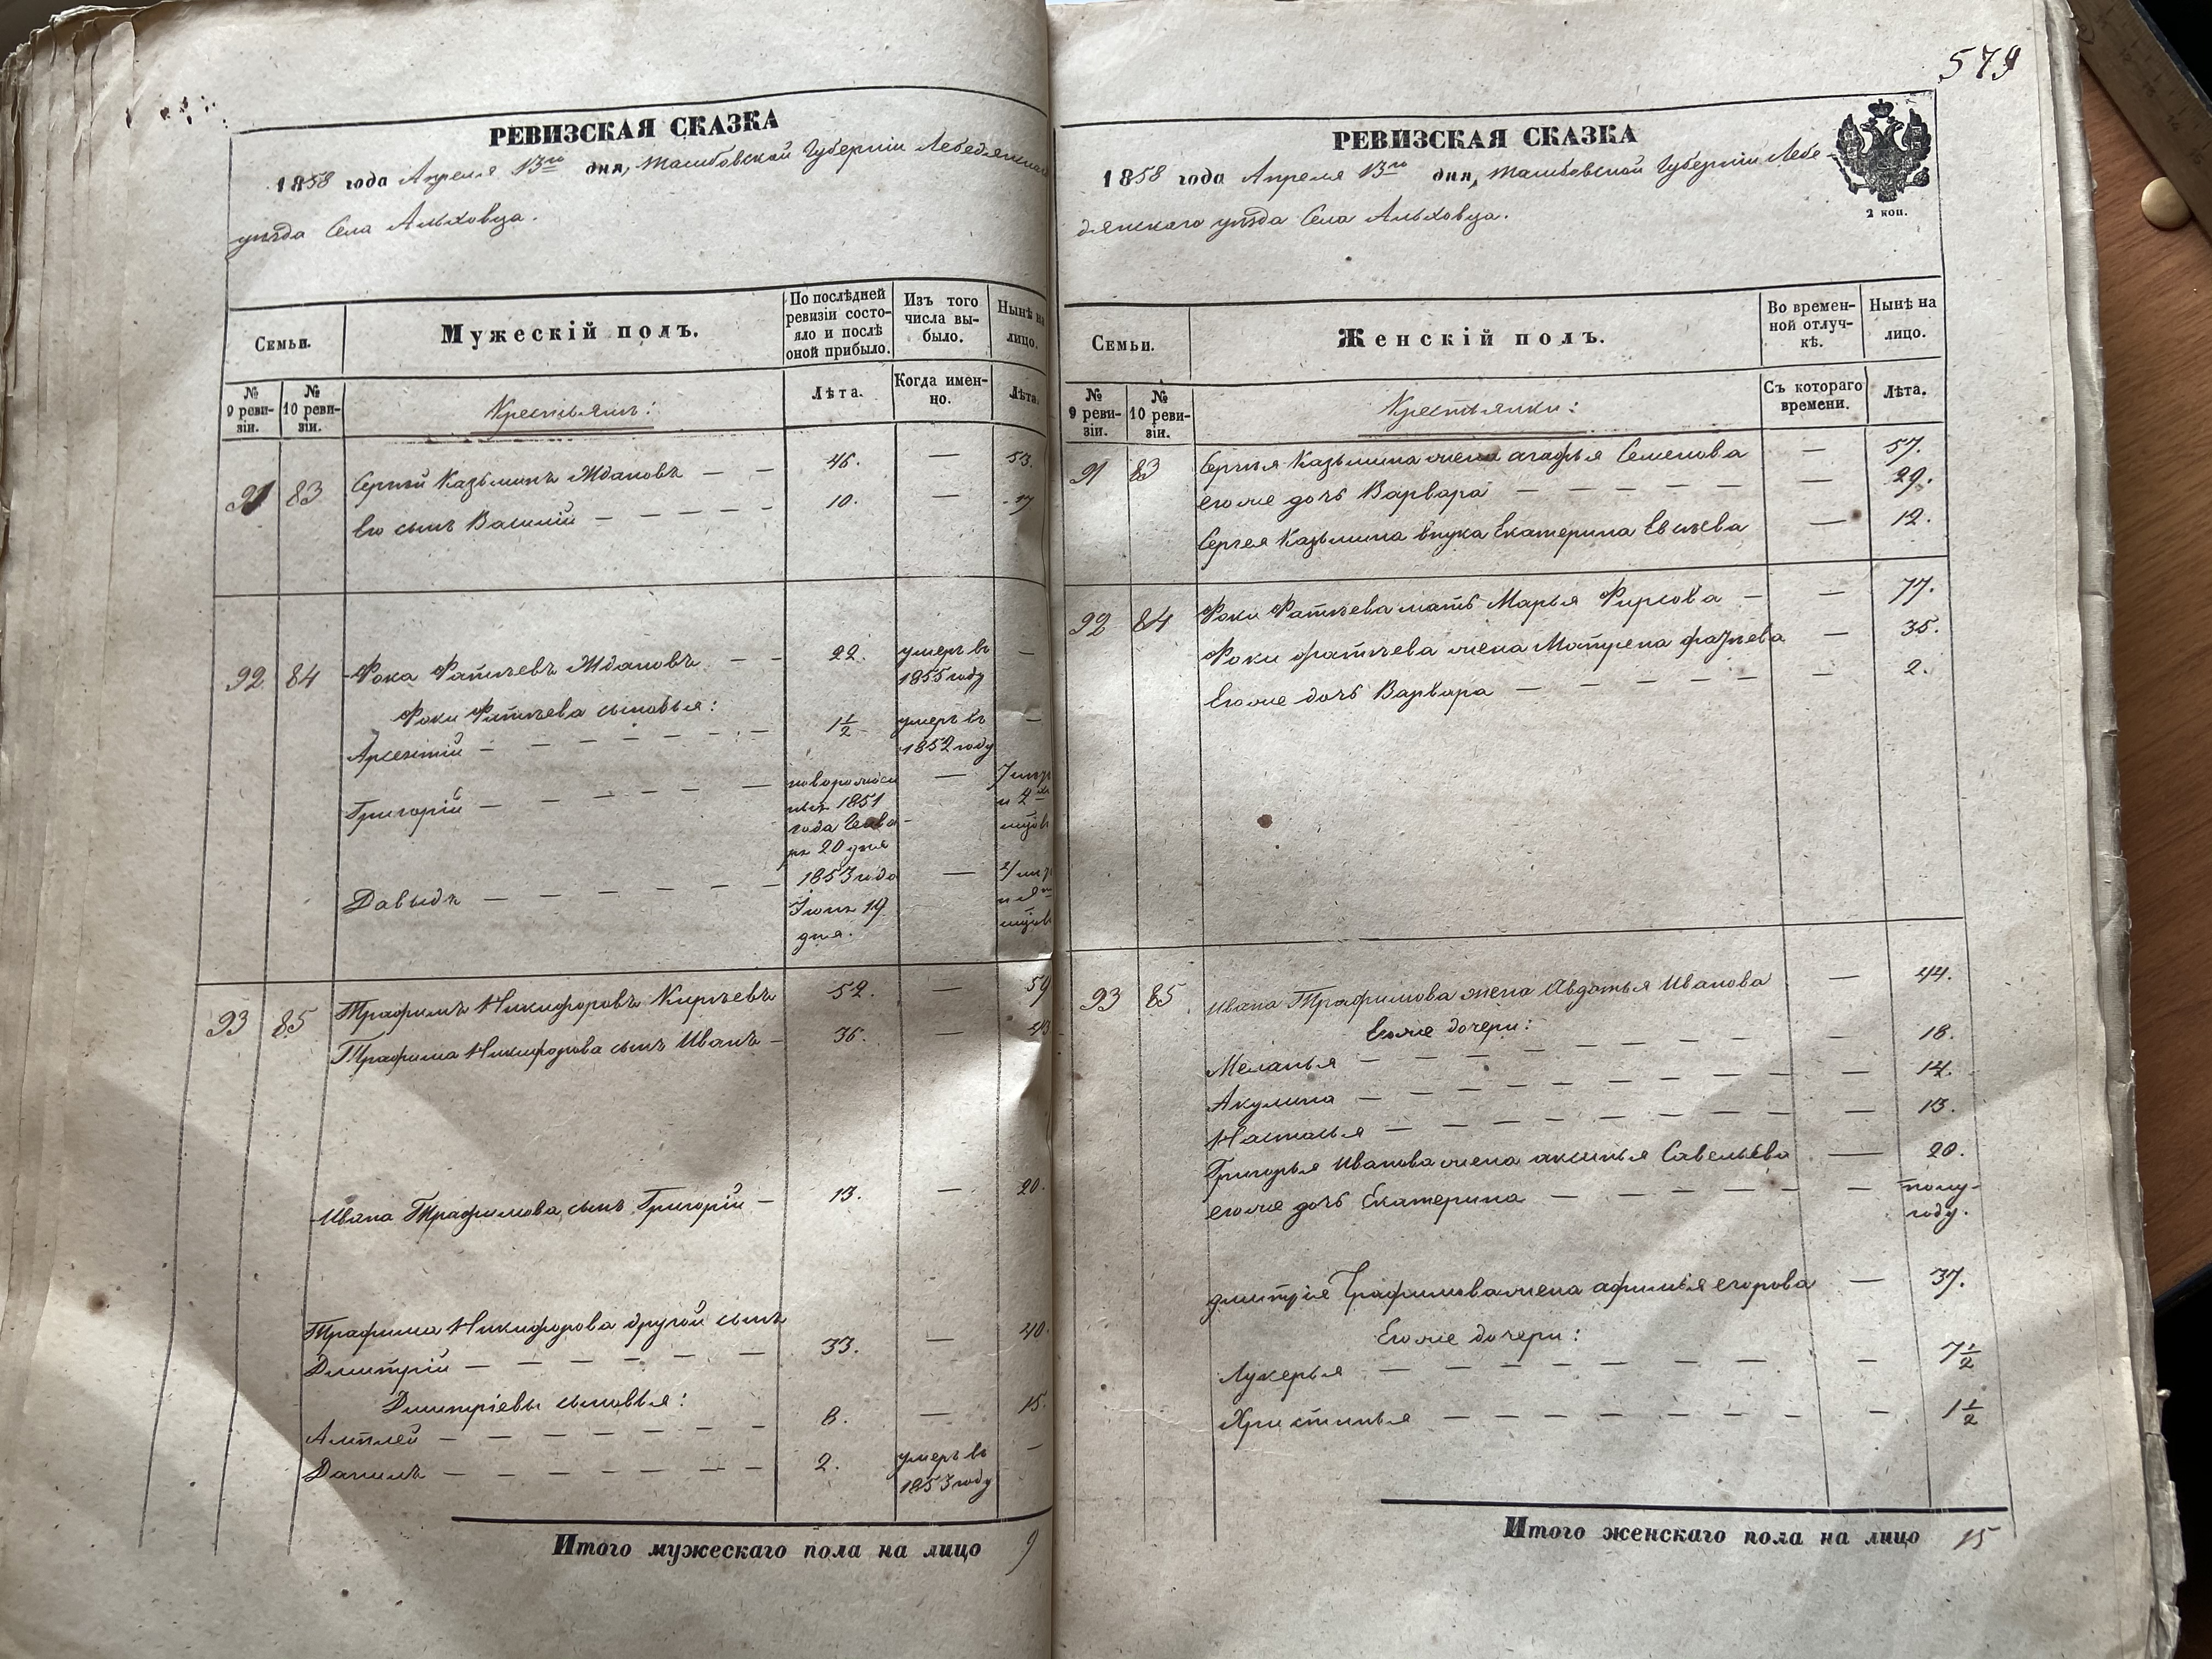 579
РЕВИЗСКАЯ СКАЗКА
1858 года Апреля 13го дня, Тамбовской Губерніи Лебедянскаго
уѣзда Села Альховца.
Семьи.
Мужескій полъ.
По послѣдней
ревизіи состо-
яло и послѣ
оной прибыло.
Изъ того
числа вы-
было.
Нынѣ на
лицо.
№
9 реви-
зіи.
№
10 реви-
зіи.
Крестьянъ:
Лѣта.
Когда имен-
но.
Лѣта.
91 83 Сергѣй Казьминъ Ждановъ — — 46. — 53.
Его сынъ Василій — — — — — 10. — 17
92 84 Фока Фатѣевъ Ждановъ — — 22. умеръ въ —
1855 году
Фоки Фатѣева сыновья:
Арсентій — — — — — — — 1½ умеръ въ —
1852 году
Григорій — — — — — — — новорожден — 7
1851
года Генва-
ря 20 дня
Давыдъ — — — — — — 1853 года —
Іюня 19
дня.
93 85 Трафимъ Никифоровъ Кирѣевъ 52. — 59
Трафима Никифорова сынъ Иванъ — 36. — 43
Ивана Трафимова сынъ Григорій — 13. — 20.
Трафима Никифорова другой сынъ
Дмитрій — — — — — — 33. — 40.
Дмитріевы сыновья:
Антпей — — — — — — — 8. — 15.
Данилъ — — — — — — — 2. умеръ въ —
1853 году
Итого мужескаго пола на лицо 9
РЕВИЗСКАЯ СКАЗКА
1858 года Апреля 13го дня, Тамбовской Губерніи Лебе-
дянскаго уѣзда Села Альховца.
2 коп.
Семьи.
Женскій полъ.
Во времен-
ной отлуч-
кѣ.
Нынѣ на
лицо.
№
9 реви-
зіи.
№
10 реви-
зіи.
Крестьянки:
Съ котораго
времени.
Лѣта.
91 83 Сергѣя Казьмина жена агафья Семенова — 57.
его же дочь Варвара — — — — — — 29.
Сергея Казьмина внука Екатерина Евсѣева — 12.
92 84 Фоки Фатѣева мать Марья Фирсова — — 77.
Фоки фатѣева жена Матрена фадѣева — 35.
Его же дочь Варвара — — — — — — 2.
93 85 Ивана Трафимова жена Авдатья Иванова — 44.
Его же дочери:
Меланья — — — — — — — — 18.
Акулина — — — — — — — — 14.
Настасья — — — — — — — — 13.
Григорья Иванова жена аксинья Савельева — 20.
его же дочь Екатерина — — — — — — полу-
году.
дмитрія Трафимова жена афимья егорова — 37.
Его же дочери:
Лукерья — — — — — — — — 7½
Христинья — — — — — — — — 1½
Итого женскаго пола на лицо 15